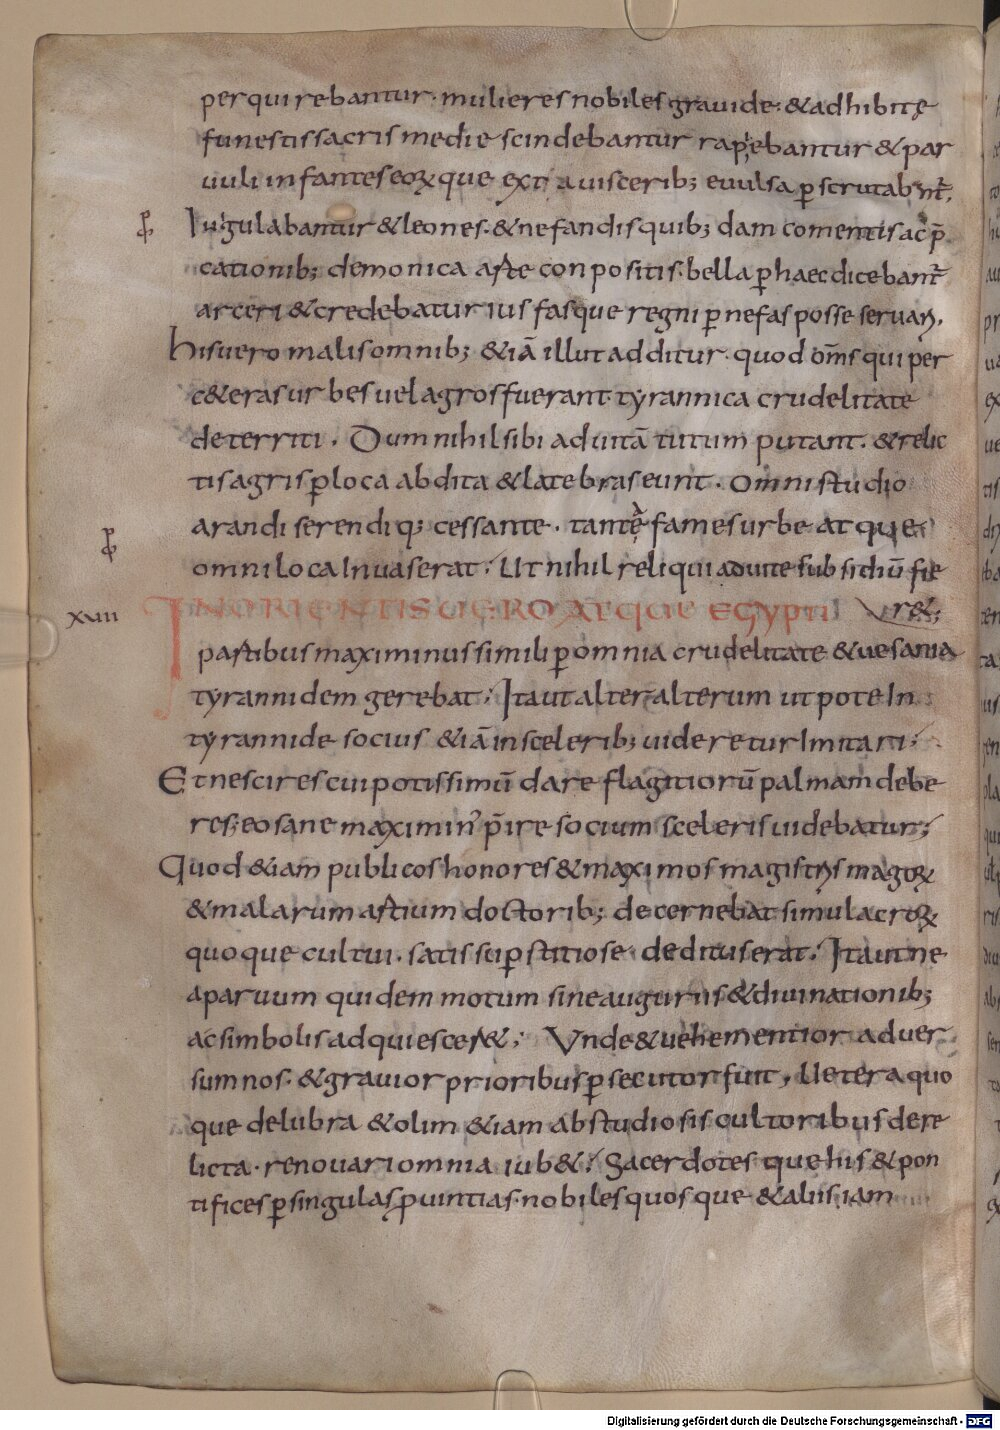 perquirebantur. mulieres nobiles grauide. & adhibitę
funestis sacris medie scindebantur rapiebantur & par
uuli infantes eoꝝque exta uisceribꝫ euulsa ꝑscrutabanͭ.
Iugulabantur & leones. & nefandis quibꝫdam comentis ac p̄
cationibꝫ demonica arte conpositis. bella ꝑ haec dicebanͭ
arceri & credebatur ius fasque regni ꝑ nefas posse seruari.
His uero malis omnibꝫ &iā illut additur. quod om̄s qui per
c&eras urbes uel agros fuerant tyrannica crudelitate
deterriti. Dum nihil sibi ad uitā tutum putant. & relic
tis agris ꝑ loca abdita & latebras eunt. Omni studio
arandi serendiqꝫ cessante. tantę fames urbe atque
omni loca Inuaserat. Ut nihil reliqui ad uite subsidiū fie
XVIII IN ORIENTIS UERO ATQUE EGYPTI r&.
partibus maximinus simili ꝑ omnia crudelitate & uesania
tyrannidem gerebat. Ita ut alter alterum utpote In
tyrannide socius &iā in sceleribꝫ uideretur Imitari.
Et nescires cui potissimū dare flagitiorū palmam debe
res; eo sane maximinꝰ p̄ire socium sceleris uidebatur;
Quod &iam publicos honores & maximos magistris magoꝝ
& malarum artium doctoribꝫ decernebat simulacroꝝ
quoque cultui. satis suꝑstitiose deditus erat. Ita ut ne
a paruum quidem motum sine auguriis & diuinationibꝫ
ac simbolis adquiescer&; Unde & uehementior aduer
sum nos. & grauior prioribus ꝑsecutor fuit. Uetera quo
que delubra & olim &iam ab studiosis cultoribus dere
licta. renouari omnia iub&. Sacerdotes que his & pon
tifices ꝑ singulas ꝓuintias. nobiles quosque & aliis iam
Digitalisierung gefördert durch die Deutsche Forschungsgemeinschaft - DFG